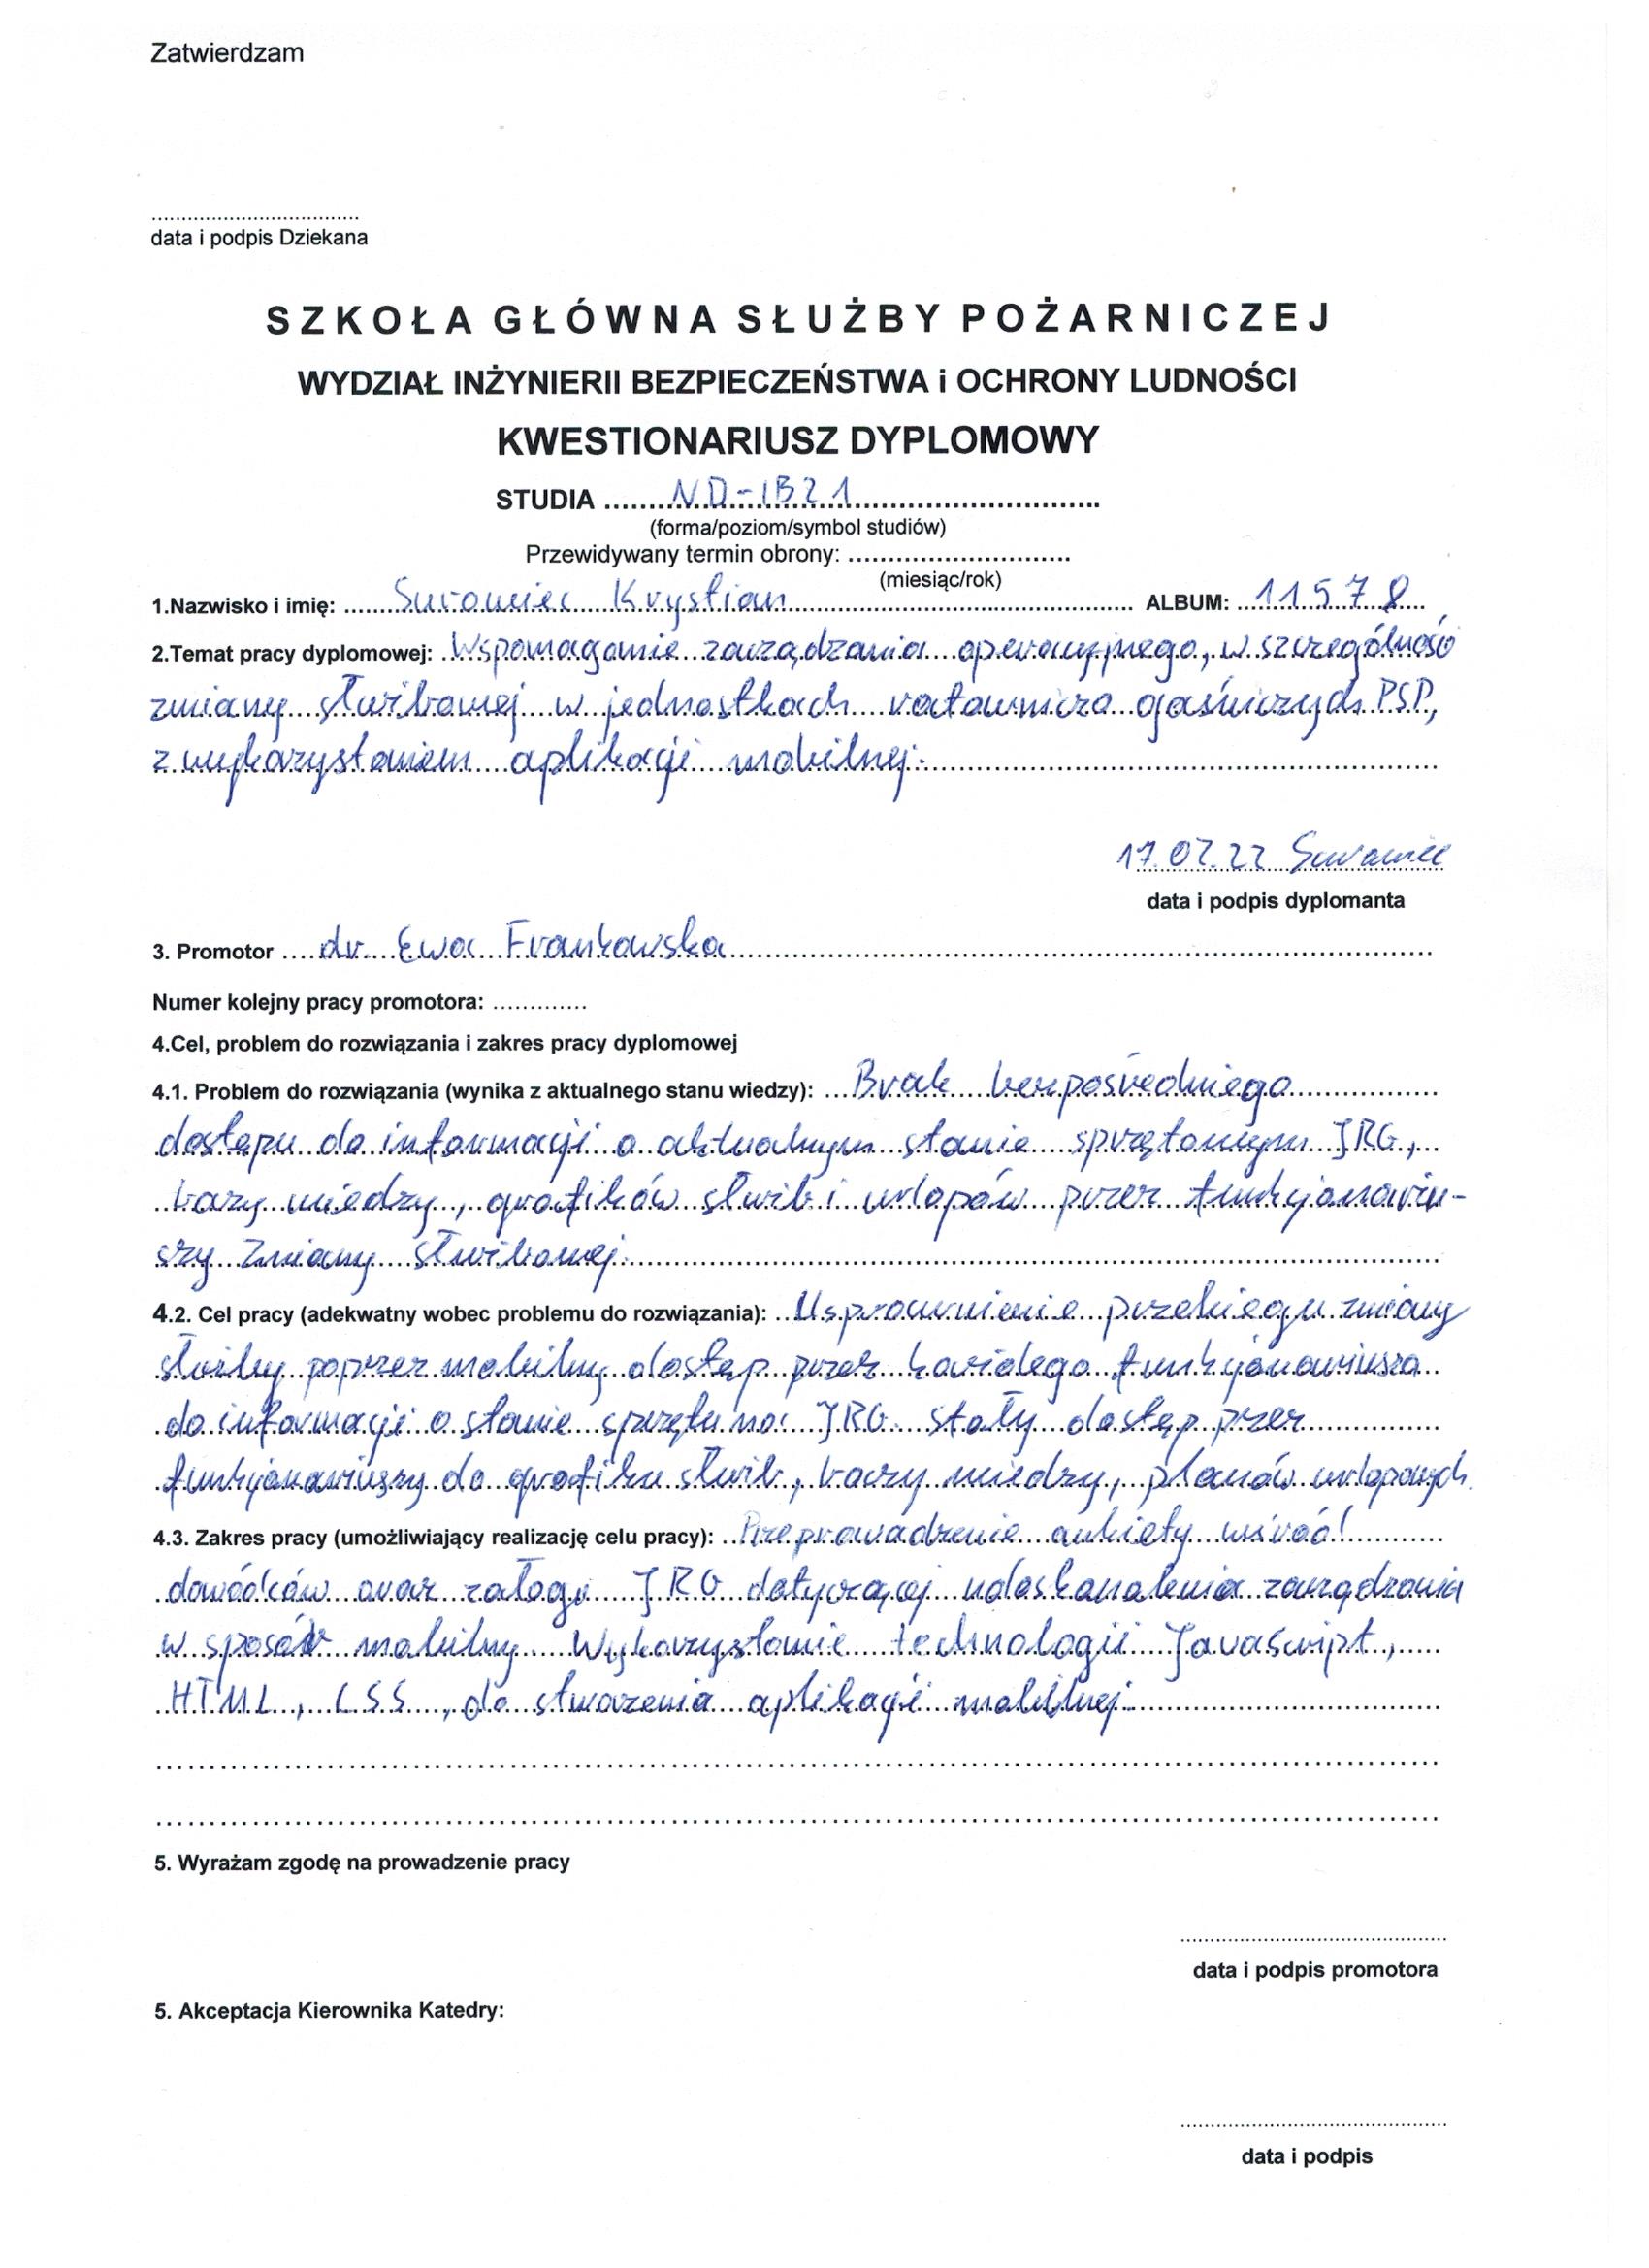 Zatwierdzam
...................................
data i podpis Dziekana
SZKOŁA GŁÓWNA SŁUŻBY POŻARNICZEJ
WYDZIAŁ INŻYNIERII BEZPIECZEŃSTWA i OCHRONY LUDNOŚCI
KWESTIONARIUSZ DYPLOMOWY
STUDIA ND-IBZ1
(forma/poziom/symbol studiów)
Przewidywany termin obrony: ..................................
(miesiąc/rok)
1.Nazwisko i imię: Surowiec Krystian ALBUM: 11578
2.Temat pracy dyplomowej: Wspomaganie zarządzania operacyjnego, w szczególność
zmiany służbowej w jednostkach ratowniczo gaśniczych PSP,
z wykorzystaniem aplikacji mobilnej.
17.02.22 Surowiec
data i podpis dyplomanta
3. Promotor dr Ewa Frankowska
Numer kolejny pracy promotora: ..............
4.Cel, problem do rozwiązania i zakres pracy dyplomowej
4.1. Problem do rozwiązania (wynika z aktualnego stanu wiedzy): Brak bezpośredniego
dostępu do informacji o aktualnym stanie sprzętowym JRG,
bazy wiedzy, grafików służb i urlopów przez funkcjonariu-
szy Zmiany służbowej.
4.2. Cel pracy (adekwatny wobec problemu do rozwiązania): Usprawnienie przebiegu zmiany
służby poprzez mobilny dostęp przez każdego funkcjonariusza
do informacji o stanie sprzętu na JRG. stały dostęp przez
funkcjonariuszy do grafiku służb, bazy wiedzy, planów urlopowych.
4.3. Zakres pracy (umożliwiający realizację celu pracy): Przeprowadzenie ankiety wśród
dowódców oraz załogi JRG dotyczącej udoskonalenia zarządzania
w sposób mobilny. Wykorzystanie technologii Javascript,
HTML, CSS, do stworzenia aplikacji mobilnej.
5. Wyrażam zgodę na prowadzenie pracy
data i podpis promotora
5. Akceptacja Kierownika Katedry:
data i podpis